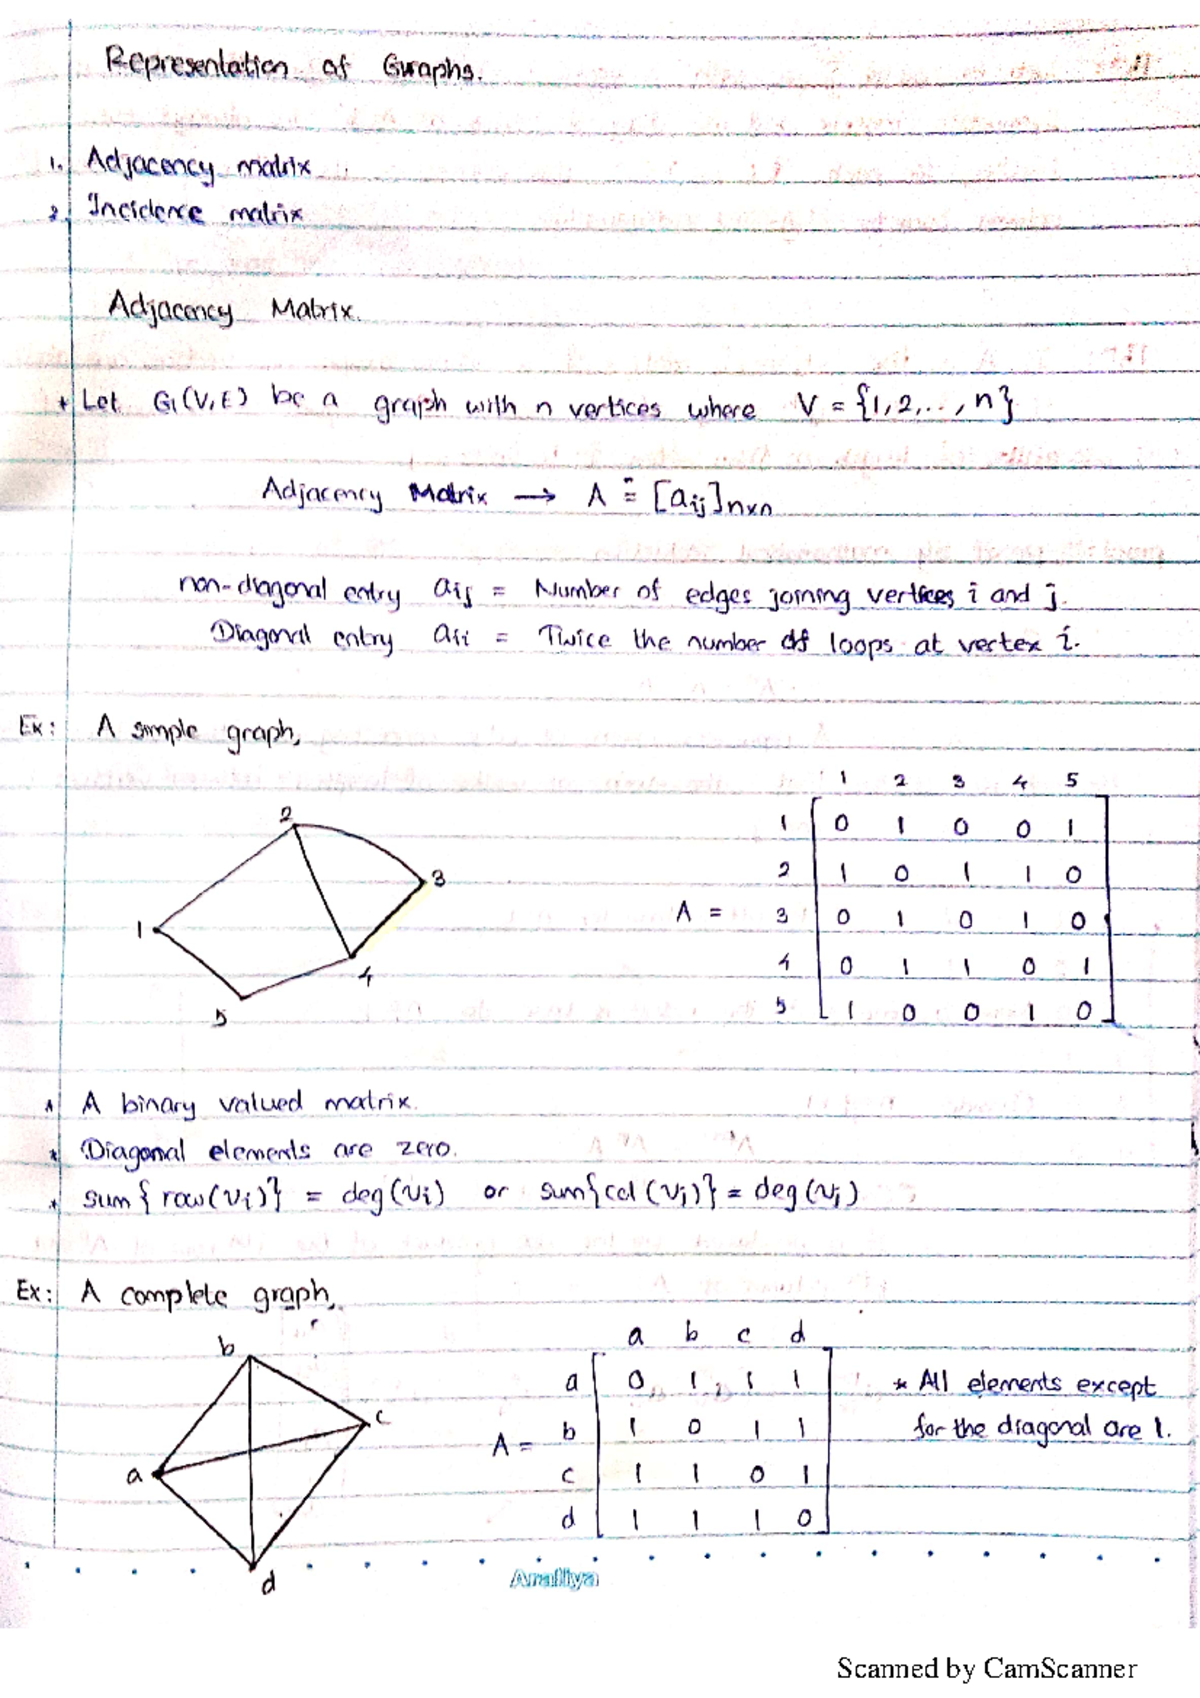 Representation of Graphs.
1. Adjacency matrix
2. Incidence matrix
Adjacency Matrix.
* Let G(V,E) be a graph with n vertices where V = {1,2,..,n}
Adjacency Matrix → A = [aij]nxn
non-diagonal entry aij = Number of edges joining vertices i and j.
Diagonal entry aii = Twice the number of loops at vertex i.
Ex: A simple graph,
1 2 3 4 5
1 0 1 0 0 1
2 1 0 1 1 0
A = 3 0 1 0 1 0
4 0 1 1 0 1
5 1 0 0 1 0
2
3
1
4
5
* A binary valued matrix.
* Diagonal elements are zero.
* sum{row(vi)} = deg(vi) or sum{col(vj)} = deg(vj)
Ex: A complete graph,
b
c
a
d
a b c d
a 0 1 1 1
b 1 0 1 1
A =
c 1 1 0 1
d 1 1 1 0
* All elements except
for the diagonal are 1.
Araliya
Scanned by CamScanner